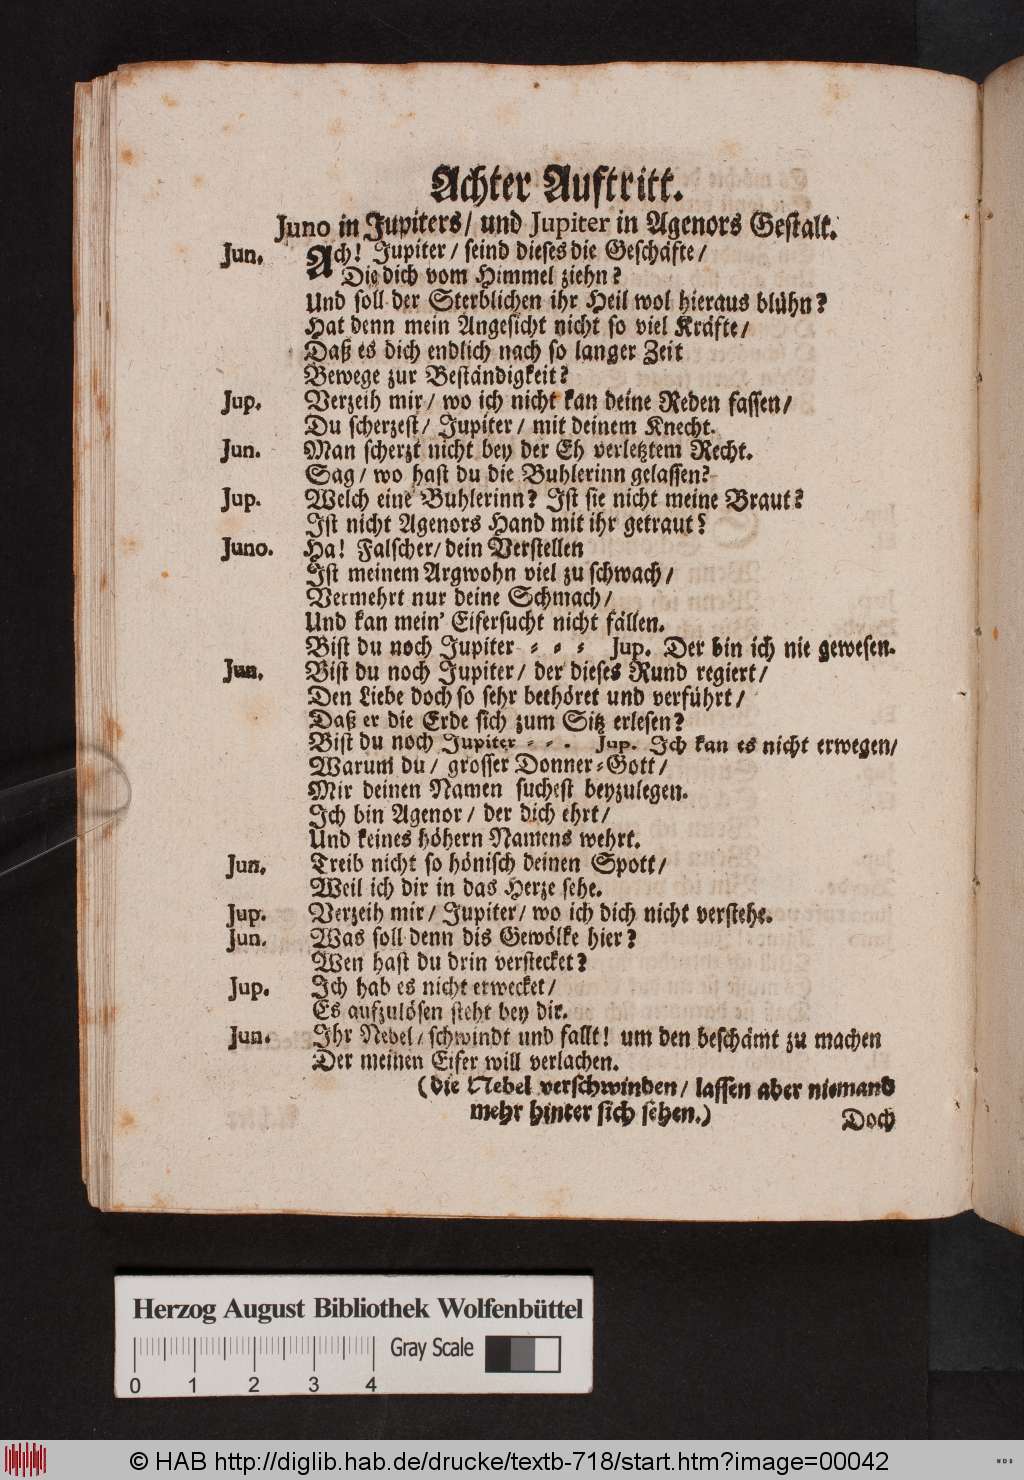 Achter Auftritt.
Juno in Jupiters/ und Jupiter in Agenors Gestalt.
Jun. Ach! Jupiter/ seind dieses die Geschäfte/
Die dich vom Himmel ziehn?
Und soll der Sterblichen ihr Heil wol hieraus blühn?
Hat denn mein Angesicht nicht so viel Kräfte/
Daß es dich endlich nach so langer Zeit
Bewege zur Beständigkeit?
Jup. Verzeih mir/ wo ich nicht kan deine Reden fassen/
Du scherzest/ Jupiter/ mit deinem Knecht.
Jun. Man scherzt nicht bey der Eh verletztem Recht.
Sag/ wo hast du die Buhlerinn gelassen?
Jup. Welch eine Buhlerinn? Ist sie nicht meine Braut?
Ist nicht Agenors Hand mit ihr getraut?
Juno. Ha! Falscher/ dein Verstellen
Ist meinem Argwohn viel zu schwach/
Vermehrt nur deine Schmach/
Und kan mein' Eifersucht nicht fällen.
Bist du noch Jupiter - - - Jup. Der bin ich nie gewesen.
Jun. Bist du noch Jupiter/ der dieses Rund regiert/
Den Liebe doch so sehr bethöret und verführt/
Daß er die Erde sich zum Sitz erlesen?
Bist du noch Jupiter - - . Jup. Ich kan es nicht erwegen/
Warum du/ grosser Donner-Gott/
Mir deinen Namen suchest beyzulegen.
Ich bin Agenor/ der dich ehrt/
Und keines höhern Namens wehrt.
Jun. Treib nicht so hönisch deinen Spott/
Weil ich dir in das Herze sehe.
Jup. Verzeih mir/ Jupiter/ wo ich dich nicht verstehe.
Jun. Was soll denn dis Gewölke hier?
Wen hast du drin verstecket?
Jup. Ich hab es nicht erwecket/
Es aufzulösen steht bey dir.
Jun. Ihr Nebel/ schwindt und fallt! um den beschämt zu machen
Der meinen Eifer will verlachen.
(die Nebel verschwinden/ lassen aber niemand
mehr hinter sich sehen.)
Doch
Herzog August Bibliothek Wolfenbüttel
Gray Scale
0 1 2 3 4
© HAB http://diglib.hab.de/drucke/textb-718/start.htm?image=00042